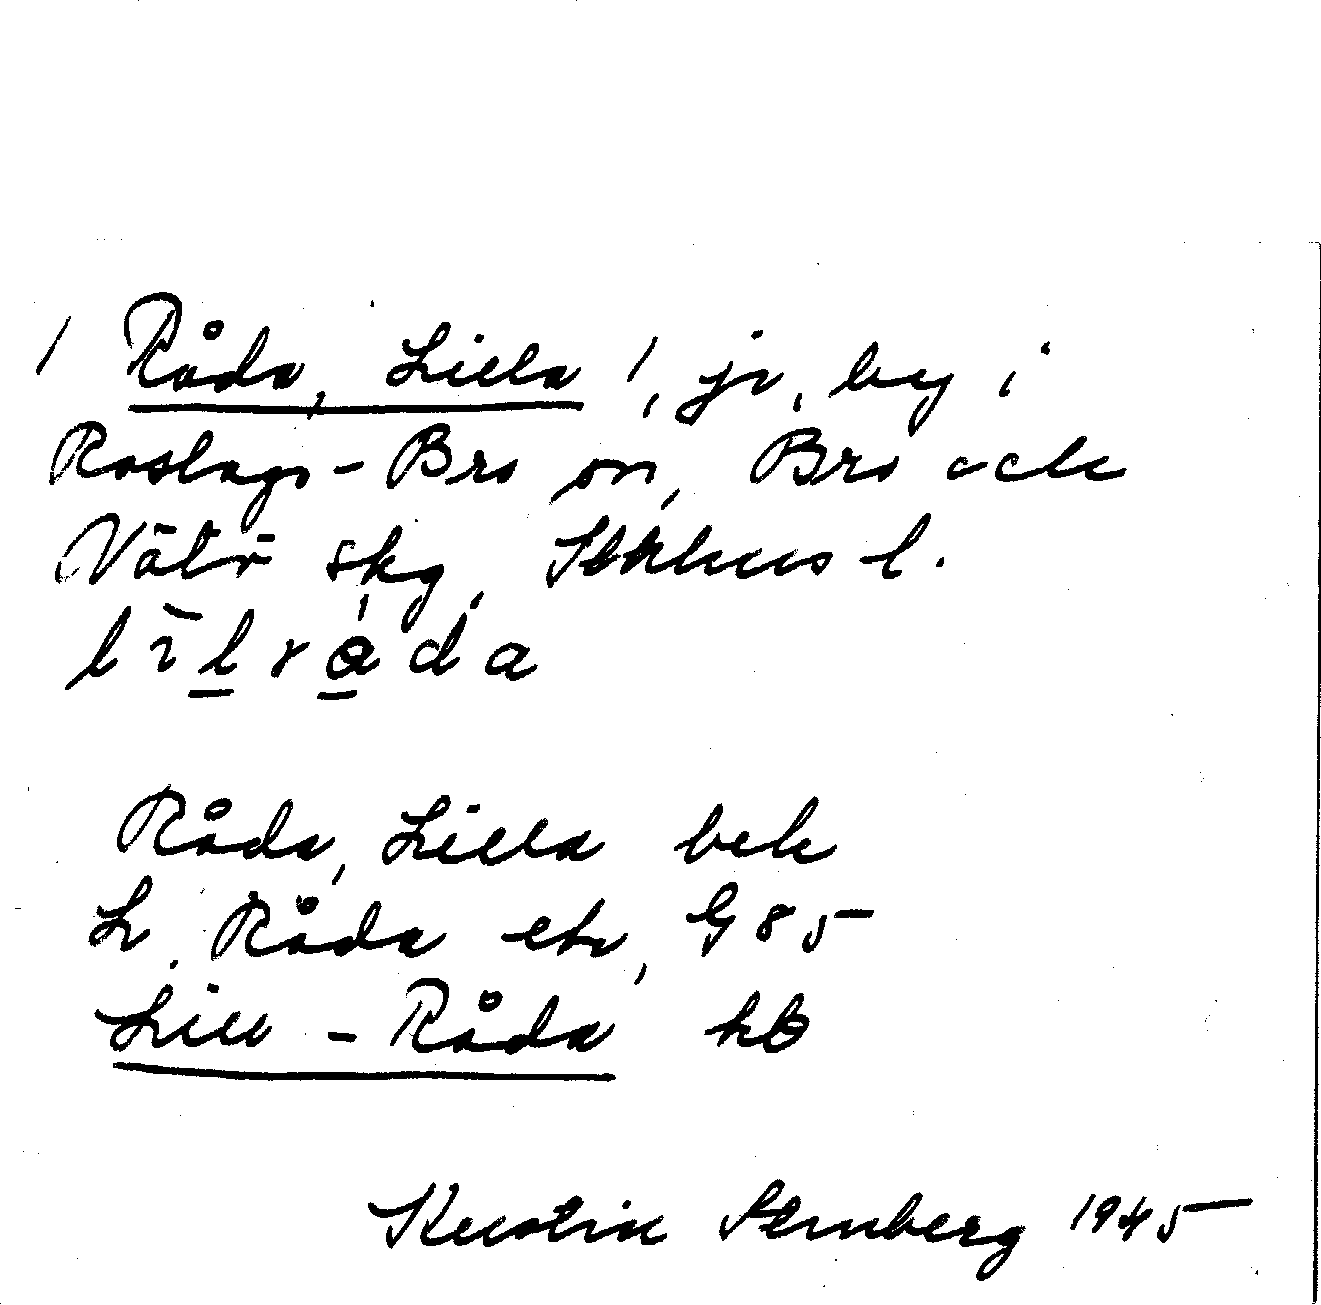 / Råda, Lilla /, jr, by i
Roslags-Bro sn, Bro och
Vätö skg, Sthlms l.
lı̄lråda
Råda, Lilla bek
L. Råda ek, G 85
Lill-Råda hb
Kerstin Stenberg 1945